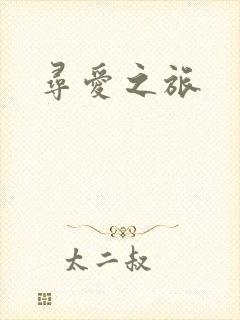 尋愛之旅
太二叔